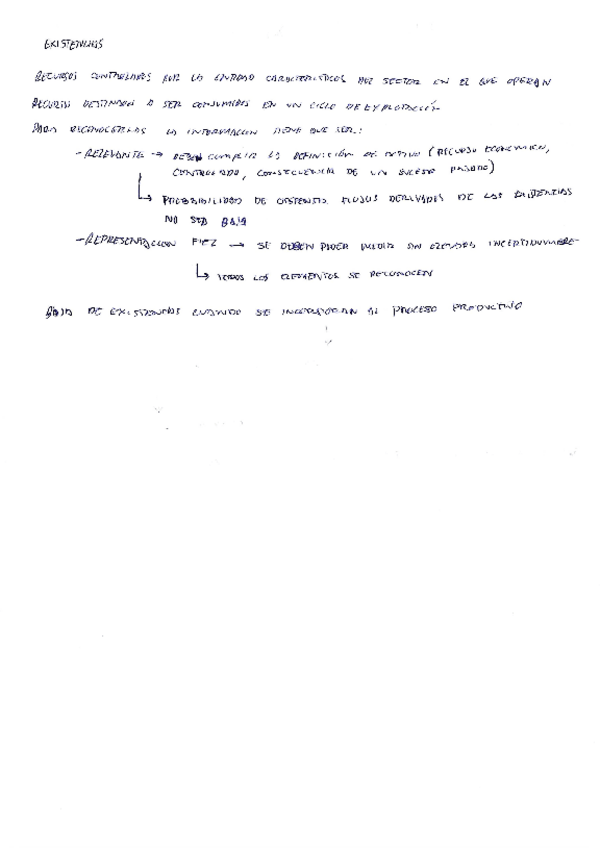 EXISTENCIAS
RECURSOS CONTROLADOS POR LA ENTIDAD CARACTERISTICOS DEL SECTOR EN EL QUE OPERAN
RECURSOS DESTINADOS A SER CONSUMIDOS EN UN CICLO DE EXPLOTACIÓN
PARA RECONOCERLAS LA INFORMACION TIENE QUE SER:
- RELEVANTE → DEBEN CUMPLIR LA DEFINICIÓN DE ACTIVO (RECURSO ECONOMICO,
CONTROLADO, CONSECUENCIA DE UN SUCESO PASADO)
↳ PROBABILIDAD DE OBTENER FLUJOS DERIVADOS DE LAS EXISTENCIAS
NO SEA BAJA
- REPRESENTACION FIEL → SE DEBEN PODER MEDIR SIN ELEVADA INCERTIDUMBRE
↳ TODOS LOS ELEMENTOS SE RECONOCEN
BAJA DE EXISTENCIAS CUANDO SE INCORPORAN AL PROCESO PRODUCTIVO